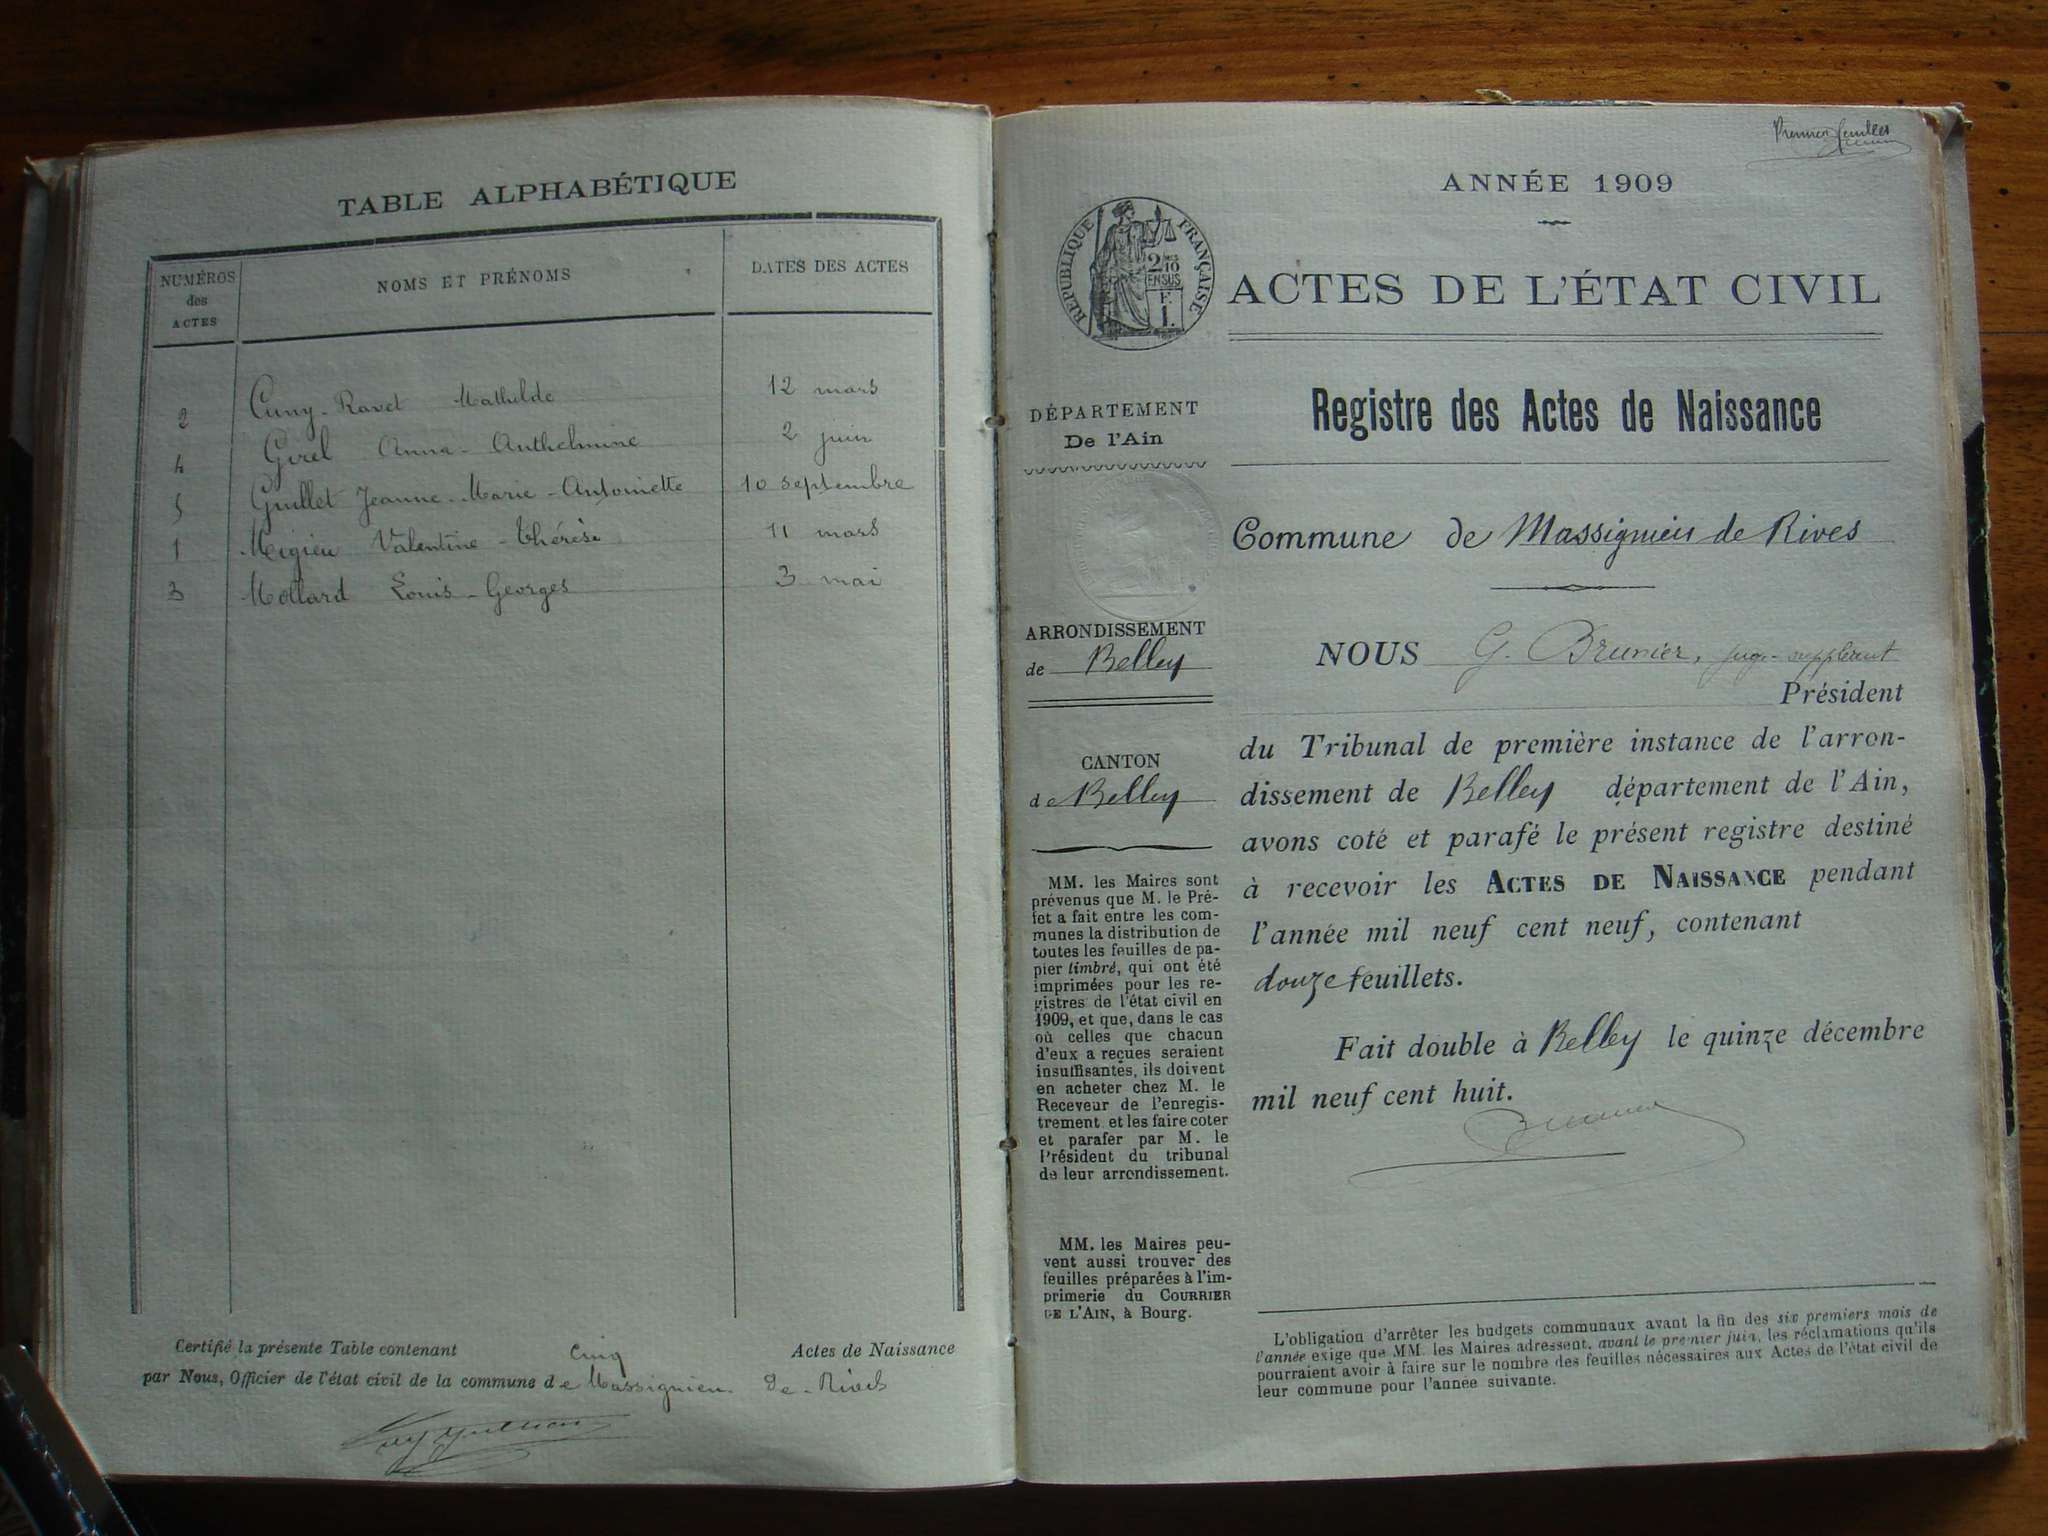 TABLE ALPHABÉTIQUE
NUMÉROS des ACTES
NOMS ET PRÉNOMS
DATES DES ACTES
2 Cuny-Ravet Mathilde 12 mars
4 Girel Anna-Anthelmine 2 juin
5 Guillet Jeanne-Marie-Antoinette 10 septembre
1 Migieu Valentine-Thérèse 11 mars
3 Mollard Louis-Georges 3 mai
Certifié la présente Table contenant cinq Actes de Naissance
par Nous, Officier de l'état civil de la commune de Massignieu de-Rives
Premier feuillet
ANNÉE 1909
RÉPUBLIQUE FRANÇAISE
2/10 EN SUS
ACTES DE L'ÉTAT CIVIL
DÉPARTEMENT
De l'Ain
ARRONDISSEMENT
de Belley
CANTON
de Belley
MM. les Maires sont
prévenus que M. le Pré-
fet a fait entre les com-
munes la distribution de
toutes les feuilles de pa-
pier timbré, qui ont été
imprimées pour les re-
gistres de l'état civil en
1909, et que, dans le cas
où celles que chacun
d'eux a reçues seraient
insuffisantes, ils doivent
en acheter chez M. le
Receveur de l'enregis-
trement et les faire coter
et parafer par M. le
Président du tribunal
de leur arrondissement.
MM. les Maires peu-
vent aussi trouver des
feuilles préparées à l'im-
primerie du COURRIER
DE L'AIN, à Bourg.
Registre des Actes de Naissance
Commune de Massignieu de Rives
NOUS G. Brunier, juge-suppléant
Président
du Tribunal de première instance de l'arron-
dissement de Belley département de l'Ain,
avons coté et parafé le présent registre destiné
à recevoir les ACTES DE NAISSANCE pendant
l'année mil neuf cent neuf, contenant
douze feuillets.
Fait double à Belley le quinze décembre
mil neuf cent huit.
Brunier
L'obligation d'arrêter les budgets communaux avant la fin des six premiers mois de
l'année exige que MM. les Maires adressent, avant le premier juin, les réclamations qu'ils
pourraient avoir à faire sur le nombre des feuilles nécessaires aux Actes de l'état civil de
leur commune pour l'année suivante.